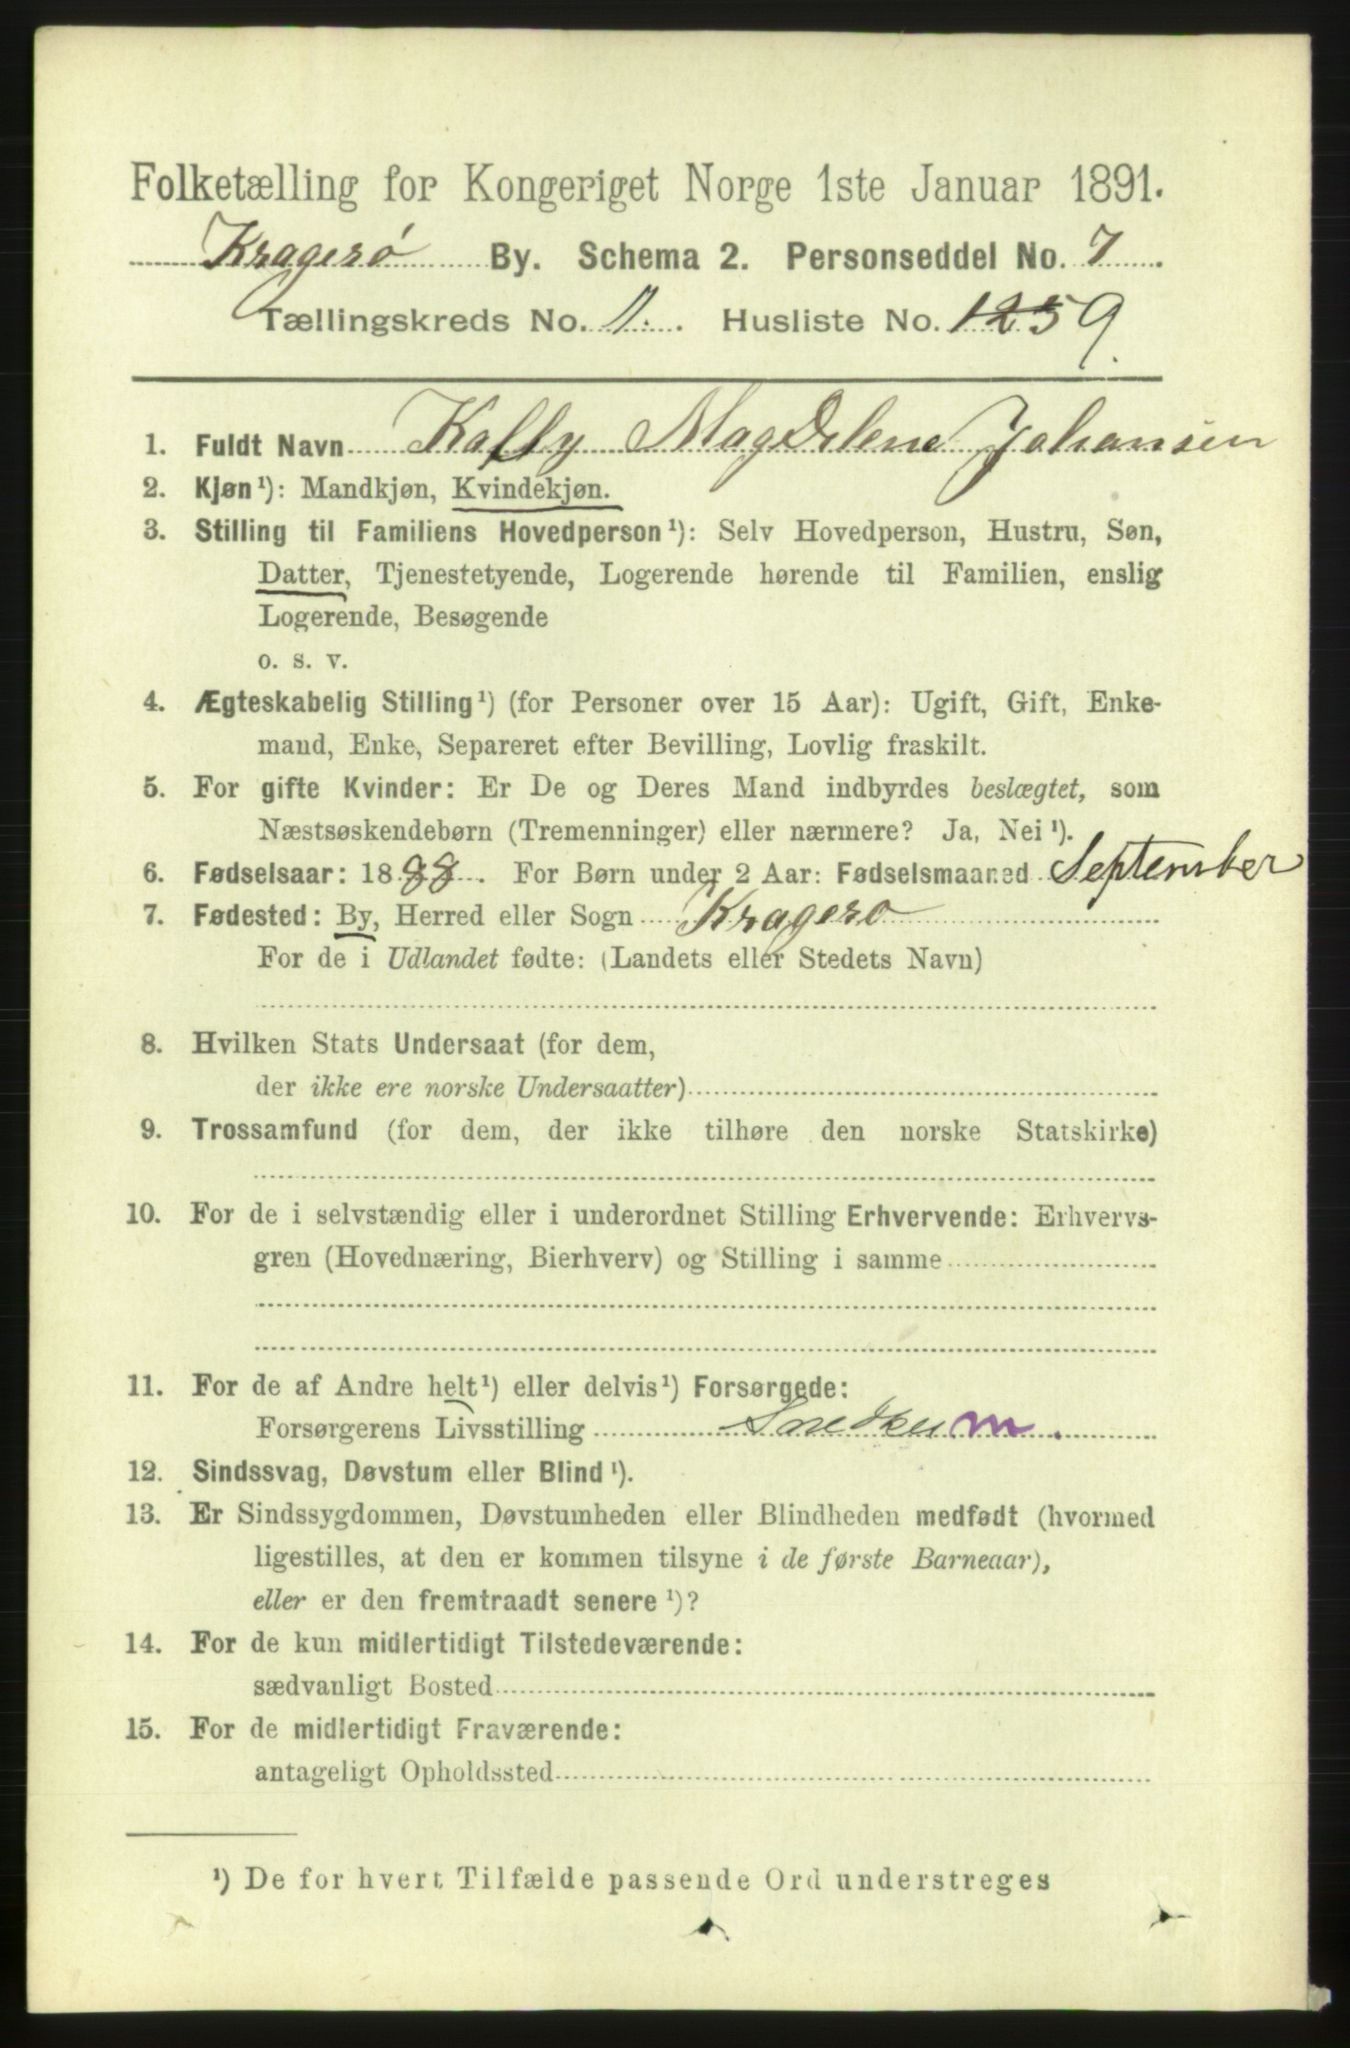 Folketælling for Kongeriget Norge 1ste Januar 1891.
Kragerø By. Schema 2. Personseddel No. 7
Tællingskreds No. 11. Husliste No. 1259
1. Fuldt Navn Kally Magdelene Johansen
2. Kjøn¹): Mandkjøn, Kvindekjøn.
3. Stilling til Familiens Hovedperson¹): Selv Hovedperson, Hustru, Søn,
Datter, Tjenestetyende, Logerende hørende til Familien, enslig
Logerende, Besøgende
o. s. v.
4. Ægteskabelig Stilling¹) (for Personer over 15 Aar): Ugift, Gift, Enke-
mand, Enke, Separeret efter Bevilling, Lovlig fraskilt.
5. For gifte Kvinder: Er De og Deres Mand indbyrdes beslægtet, som
Næstsøskendebørn (Tremenninger) eller nærmere? Ja, Nei¹).
6. Fødselsaar: 1888. For Børn under 2 Aar: Fødselsmaaned September
7. Fødested: By, Herred eller Sogn Kragerø
For de i Udlandet fødte: (Landets eller Stedets Navn)
8. Hvilken Stats Undersaat (for dem,
der ikke ere norske Undersaatter)
9. Trossamfund (for dem, der ikke tilhøre den norske Statskirke)
10. For de i selvstændig eller i underordnet Stilling Erhvervende: Erhvervs-
gren (Hovednæring, Bierhverv) og Stilling i samme
11. For de af Andre helt¹) eller delvis¹) Forsørgede:
Forsørgerens Livsstilling Snedker m.
12. Sindssvag, Døvstum eller Blind¹).
13. Er Sindssygdommen, Døvstumheden eller Blindheden medfødt (hvormed
ligestilles, at den er kommen tilsyne i de første Barneaar),
eller er den fremtraadt senere¹)?
14. For de kun midlertidigt Tilstedeværende:
sædvanligt Bosted
15. For de midlertidigt Fraværende:
antageligt Opholdssted
¹) De for hvert Tilfælde passende Ord understreges